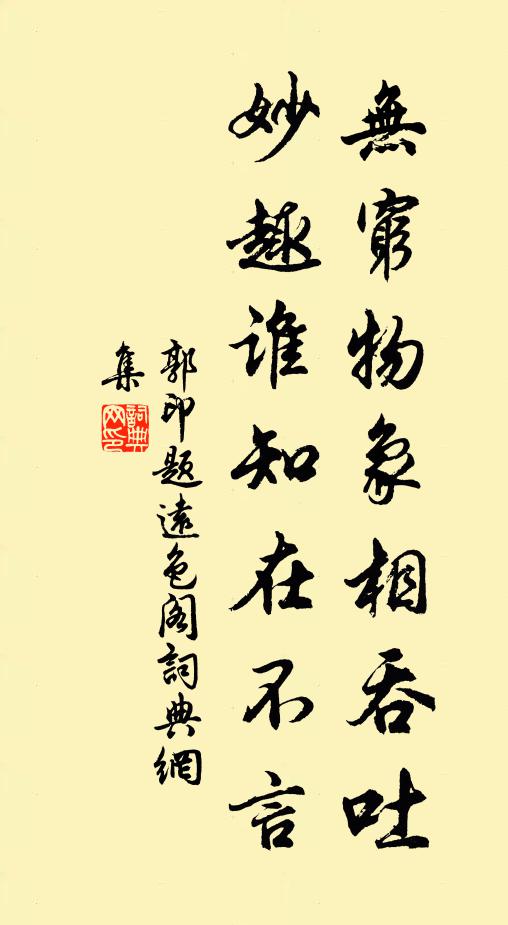 無窮物象相吞吐
妙趣誰知在不言
郭印題遠色阁詞典網
集
詞典网印